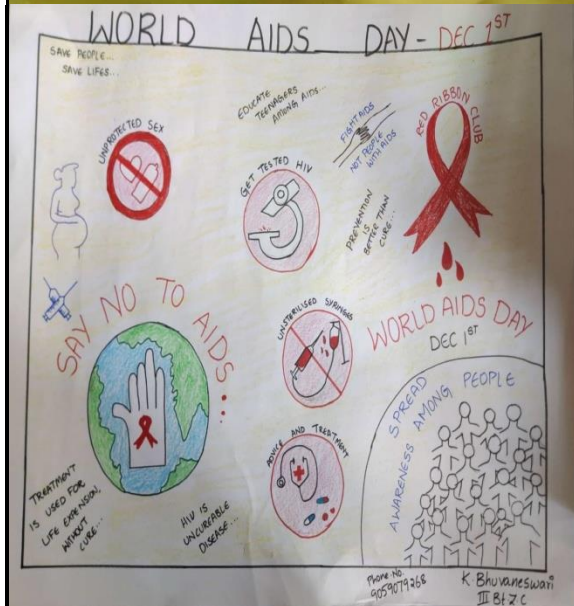 WORLD AIDS DAY - DEC 1ST
SAVE PEOPLE...
SAVE LIFES...
UNPROTECTED SEX
EDUCATE
TEENAGERS
AMONG AIDS...
GET TESTED HIV
FIGHT AIDS
NOT PEOPLE
WITH AIDS
PREVENTION
IS
BETTER THAN
CURE...
RED RIBBON CLUB
SAY NO TO AIDS...
UNSTERILISED SYRINGES
WORLD AIDS DAY
DEC 1ST
ADVICE AND TREATMENT
SPREAD
AWARENESS AMONG PEOPLE
TREATMENT
IS USED FOR
LIFE EXPENSION,
WITHOUT
CURE...
HIV IS
UNCUREABLE
DISEASE...
Phone No.
9059079268
K. Bhuvaneswari
III BtZC